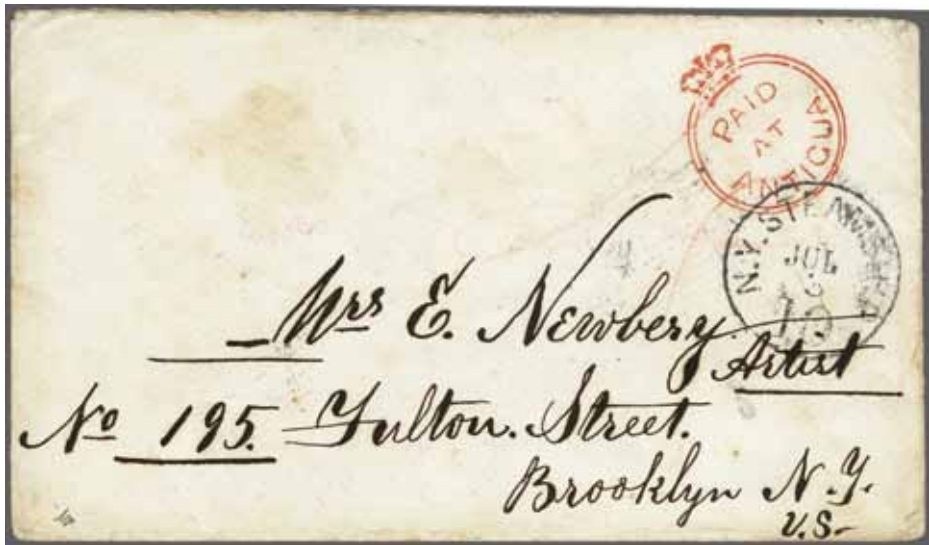 PAID
AT
ANTIGUA
N.Y. STEAMSHIP
JUL
Mrs E. Newbery
Artist
No 195. Fulton. Street.
Brooklyn N.Y.
U.S.